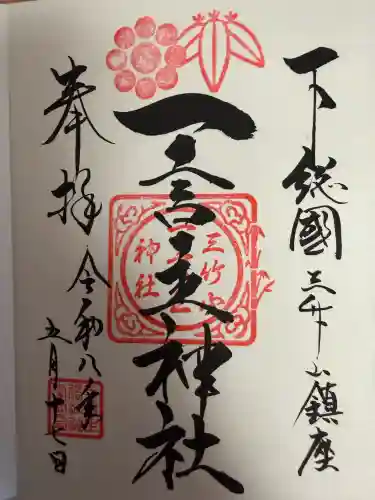 下総國三竹山鎮座
一言主神社
三竹山
一言主
神社
奉拝
令和八年
五月十七日